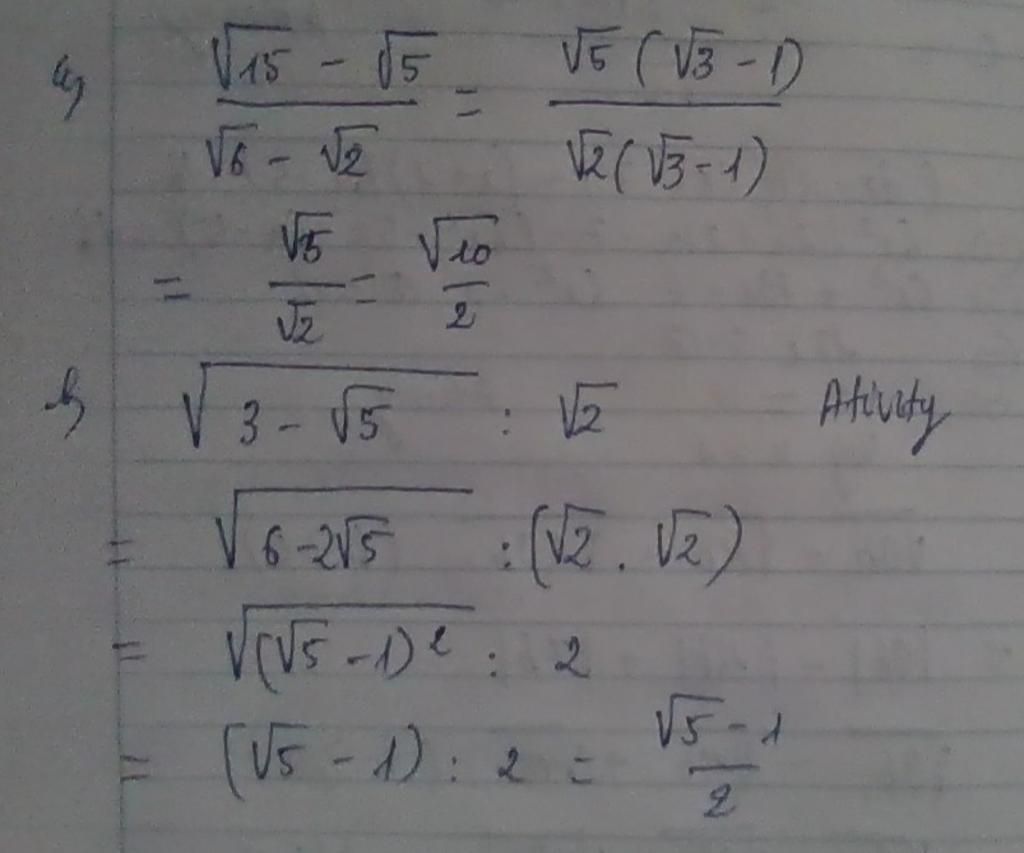 a) (√15 - √5)/(√6 - √2) = (√5 (√3 - 1))/(√2 (√3 - 1))
= √5/√2 = √10/2
b) √(3 - √5) : √2 Ativity
= √(6 - 2√5) : (√2 . √2)
= √((√5 - 1)²) : 2
= (√5 - 1) : 2 = (√5 - 1)/2